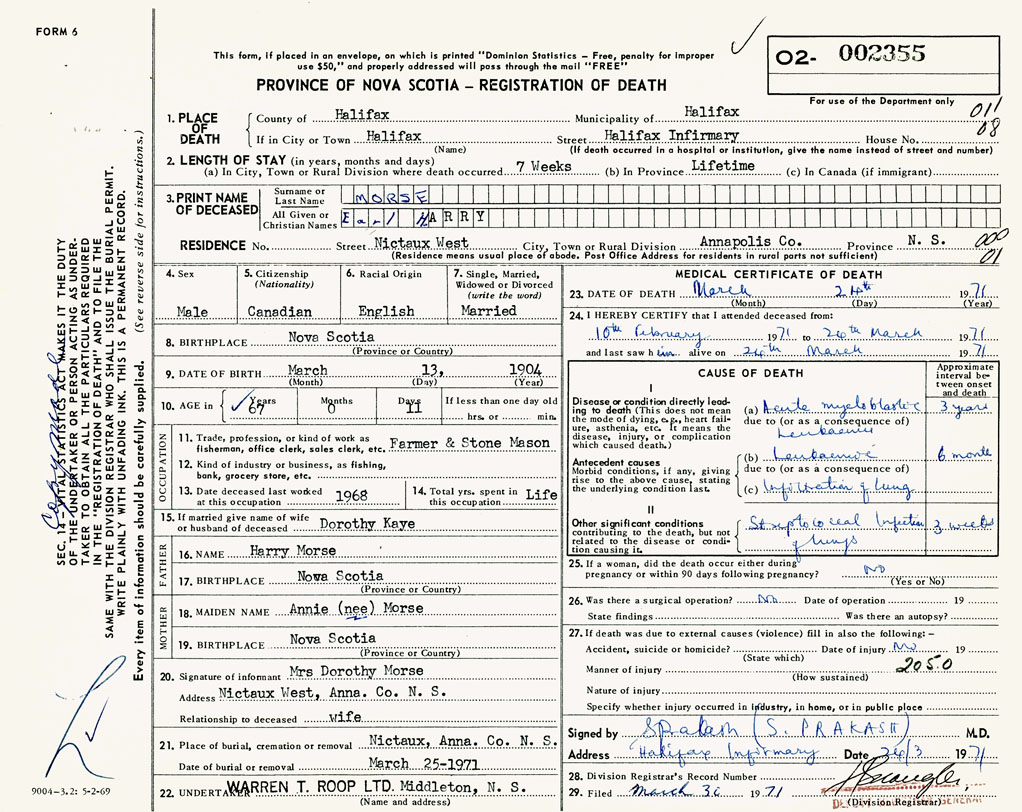 FORM 6
This form, if placed in an envelope, on which is printed "Dominion Statistics – Free, penalty for improper
use $50," and properly addressed will pass through the mail "FREE"
PROVINCE OF NOVA SCOTIA – REGISTRATION OF DEATH
O2- 002355
For use of the Department only
011
08
1. PLACE OF DEATH
County of Halifax Municipality of Halifax
If in City or Town Halifax Street Halifax Infirmary House No.
(Name) (If death occurred in a hospital or institution, give the name instead of street and number)
2. LENGTH OF STAY (in years, months and days)
(a) In City, Town or Rural Division where death occurred 7 Weeks (b) In Province Lifetime (c) In Canada (if immigrant)
3. PRINT NAME OF DECEASED
Surname or Last Name MORSE
All Given or Christian Names Earl HARRY
RESIDENCE No. Street Nictaux West City, Town or Rural Division Annapolis Co. Province N. S.
000
01
(Residence means usual place of abode. Post Office Address for residents in rural parts not sufficient)
4. Sex
Male
5. Citizenship
(Nationality)
Canadian
6. Racial Origin
English
7. Single, Married,
Widowed or Divorced
(write the word)
Married
8. BIRTHPLACE Nova Scotia
(Province or Country)
9. DATE OF BIRTH March 13, 1904
(Month) (Day) (Year)
10. AGE in Years 67 Months 0 Days 11 If less than one day old
hrs. or min.
OCCUPATION
11. Trade, profession, or kind of work as
fisherman, office clerk, sales clerk, etc. Farmer & Stone Mason
12. Kind of industry or business, as fishing,
bank, grocery store, etc.
13. Date deceased last worked
at this occupation 1968
14. Total yrs. spent in
this occupation Life
15. If married give name of wife
or husband of deceased Dorothy Kaye
FATHER
16. NAME Harry Morse
17. BIRTHPLACE Nova Scotia
(Province or Country)
MOTHER
18. MAIDEN NAME Annie (nee) Morse
19. BIRTHPLACE Nova Scotia
(Province or Country)
20. Signature of informant Mrs Dorothy Morse
Address Nictaux West, Anna. Co. N. S.
Relationship to deceased wife
21. Place of burial, cremation or removal Nictaux, Anna. Co. N. S.
Date of burial or removal March 25-1971
22. UNDERTAKER WARREN T. ROOP LTD. Middleton, N. S.
(Name and address)
MEDICAL CERTIFICATE OF DEATH
23. DATE OF DEATH March 24th 1971
(Month) (Day) (Year)
24. I HEREBY CERTIFY that I attended deceased from:
10th February 1971 to 24th March 1971
and last saw him alive on 24th March 1971
CAUSE OF DEATH
Approximate
interval be-
tween onset
and death
I
Disease or condition directly lead-
ing to death (This does not mean
the mode of dying, e.g., heart fail-
ure, asthenia, etc. It means the
disease, injury, or complication
which caused death.)
(a) Acute myeloblastic 3 years
due to (or as a consequence of)
Leukaemia
Antecedent causes
Morbid conditions, if any, giving
rise to the above cause, stating
the underlying condition last.
(b) Leukaemic 6 months
due to (or as a consequence of)
(c) Infiltration of lung
II
Other significant conditions
contributing to the death, but not
related to the disease or condi-
tion causing it.
Streptococcal Infection 3 weeks
of lungs
25. If a woman, did the death occur either during
pregnancy or within 90 days following pregnancy? NO
(Yes or No)
26. Was there a surgical operation? No Date of operation 19
State findings Was there an autopsy?
27. If death was due to external causes (violence) fill in also the following: –
Accident, suicide or homicide? Date of injury No 19
(State which)
Manner of injury 205.0
(How sustained)
Nature of injury
Specify whether injury occurred in industry, in home, or in public place
Signed by SPrakash (S. PRAKASH) M.D.
Address Halifax Infirmary Date 24/3 1971
28. Division Registrar's Record Number
29. Filed March 30 1971
(Division Registrar)
SEC. 14 – VITAL STATISTICS ACT MAKES IT THE DUTY
OF THE UNDERTAKER OR PERSON ACTING AS UNDER-
TAKER TO OBTAIN ALL THE PARTICULARS REQUIRED
IN THE "REGISTRATION OF DEATH" AND TO FILE THE
SAME WITH THE DIVISION REGISTRAR WHO SHALL ISSUE THE BURIAL PERMIT.
WRITE PLAINLY WITH UNFADING INK. THIS IS A PERMANENT RECORD.
Every item of information should be carefully supplied. (See reverse side for instructions.)
9004-3.2: 5-2-69